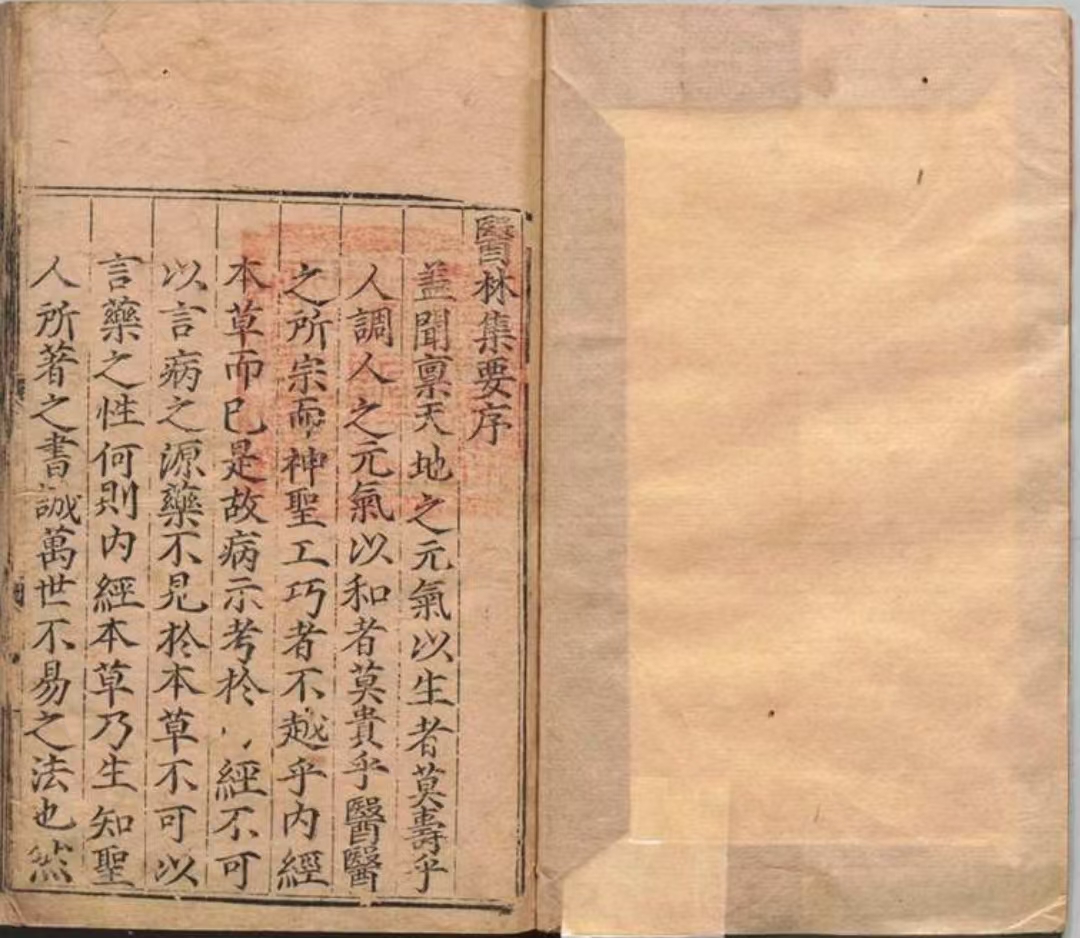 醫林集要序
蓋聞稟天地之元氣以生者莫壽乎
人調人之元氣以和者莫貴乎醫醫
之所宗而神聖工巧者不越乎内經
本草而已是故病示考於經不可
以言病之源藥不見於本草不可以
言藥之性何則内經本草乃生知聖
人所著之書誠萬世不易之法也然